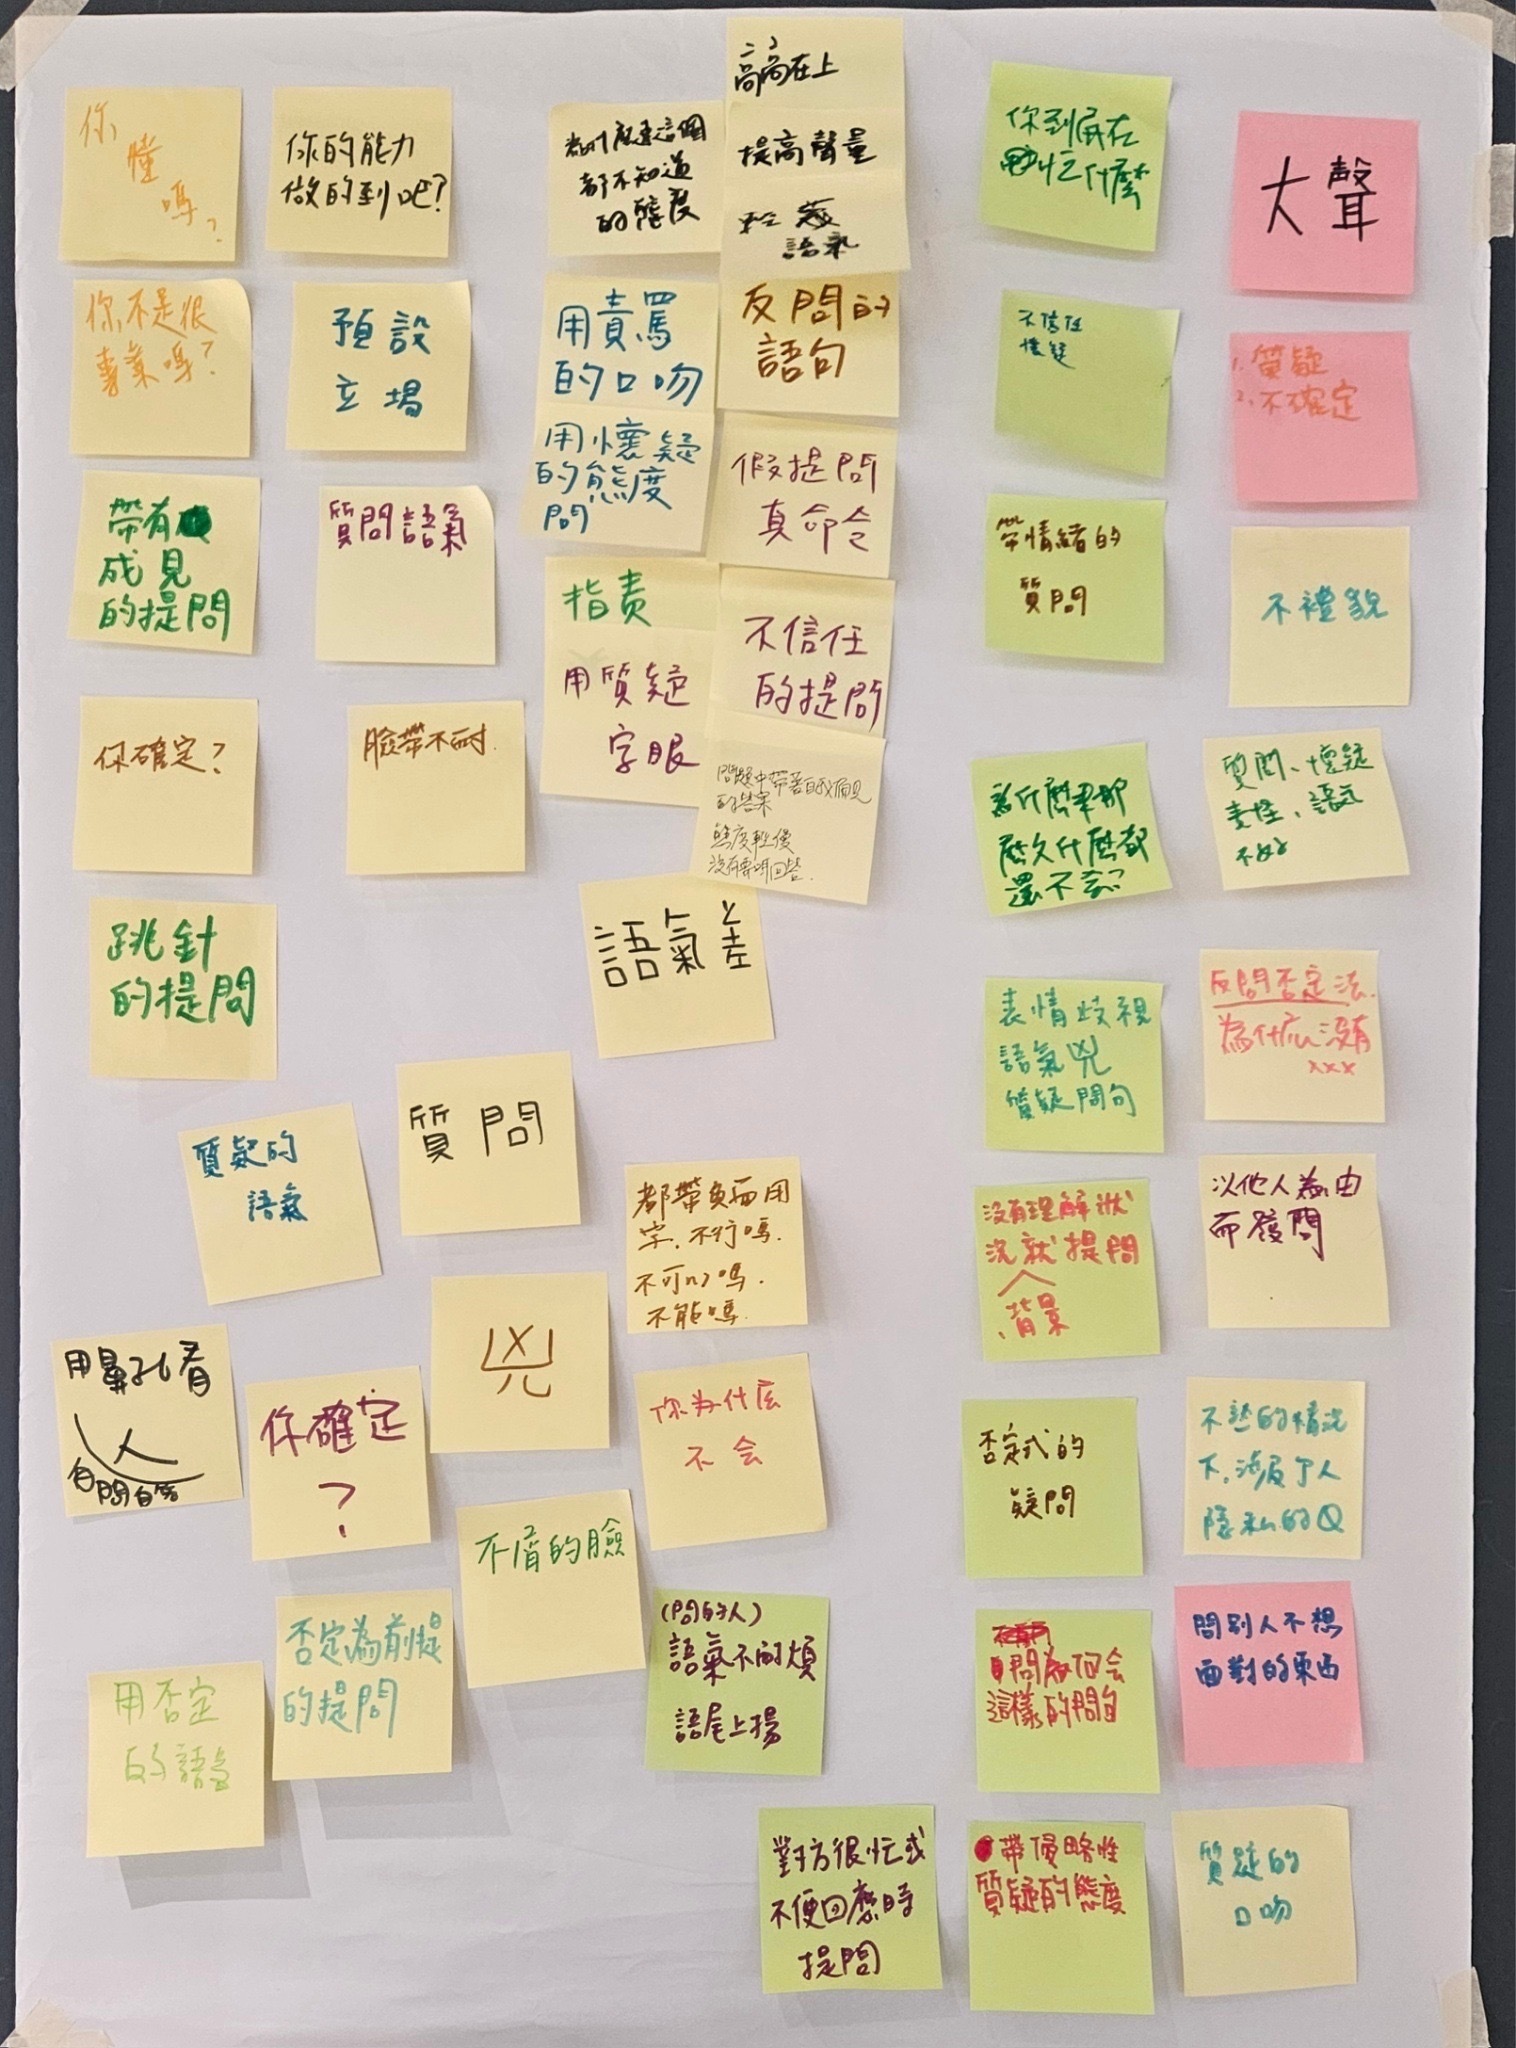 你
懂
嗎?
你的能力
做的到吧?
為什麼連這個
都不知道
的態度
高高在上
提高聲量
輕蔑
語氣
你到底在
忙什麼
大聲
你不是很
專業嗎?
預設
立場
用責罵
的口吻
反問的
語句
不信任
懷疑
1. 質疑
2. 不確定
帶有
成見
的提問
質問語氣
用懷疑
的態度
問
假提問
真命令
帶情緒的
質問
不禮貌
指責
用質疑
字眼
不信任
的提問
你確定?
臉帶不耐.
問題中帶著自我偏見
的答案
態度輕慢
沒有要明回答.
為什麼畢那
麼久什麼都
還不會?
質問、懷疑
責怪、語気
不好
跳針
的提問
語氣差
表情歧視
語氣兇
質疑問句
反問否定法.
為什麼沒有
xxx
質疑的
語氣
質問
都帶負面用
字.不行嗎.
不可以嗎.
不能嗎.
沒有理解狀
況就提問
、背景
以他人為由
而發問
用鼻孔看
人
自問自答
你確定
?
兇
你为什么
不会
否定式的
疑問
不熟的情況
下,涉及了人
隱私的Q
不屑的臉
用否定
的語氣
否定為前提
的提問
(問的人)
語氣不耐煩
語尾上揚
自問為何会
這樣的問自
問別人不想
面對的東西
對方很忙或
不便回應時
提問
帶侵略性
質疑的態度
質疑的
口吻